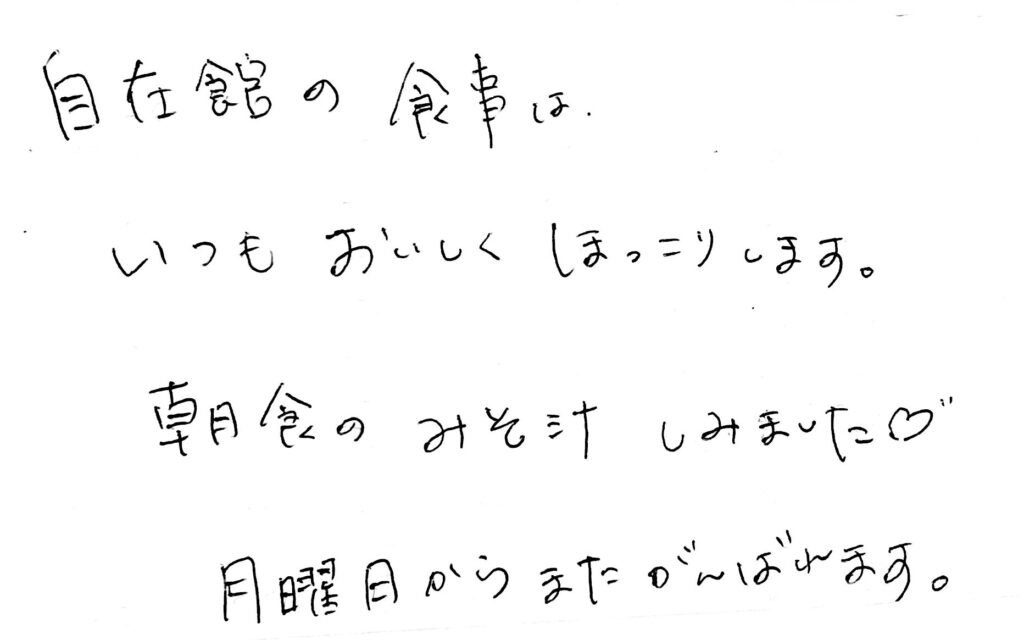 自在館の食事は.
いつもおいしくほっこりします。
朝食のみそ汁しみました♡
月曜日からまたがんばれます。